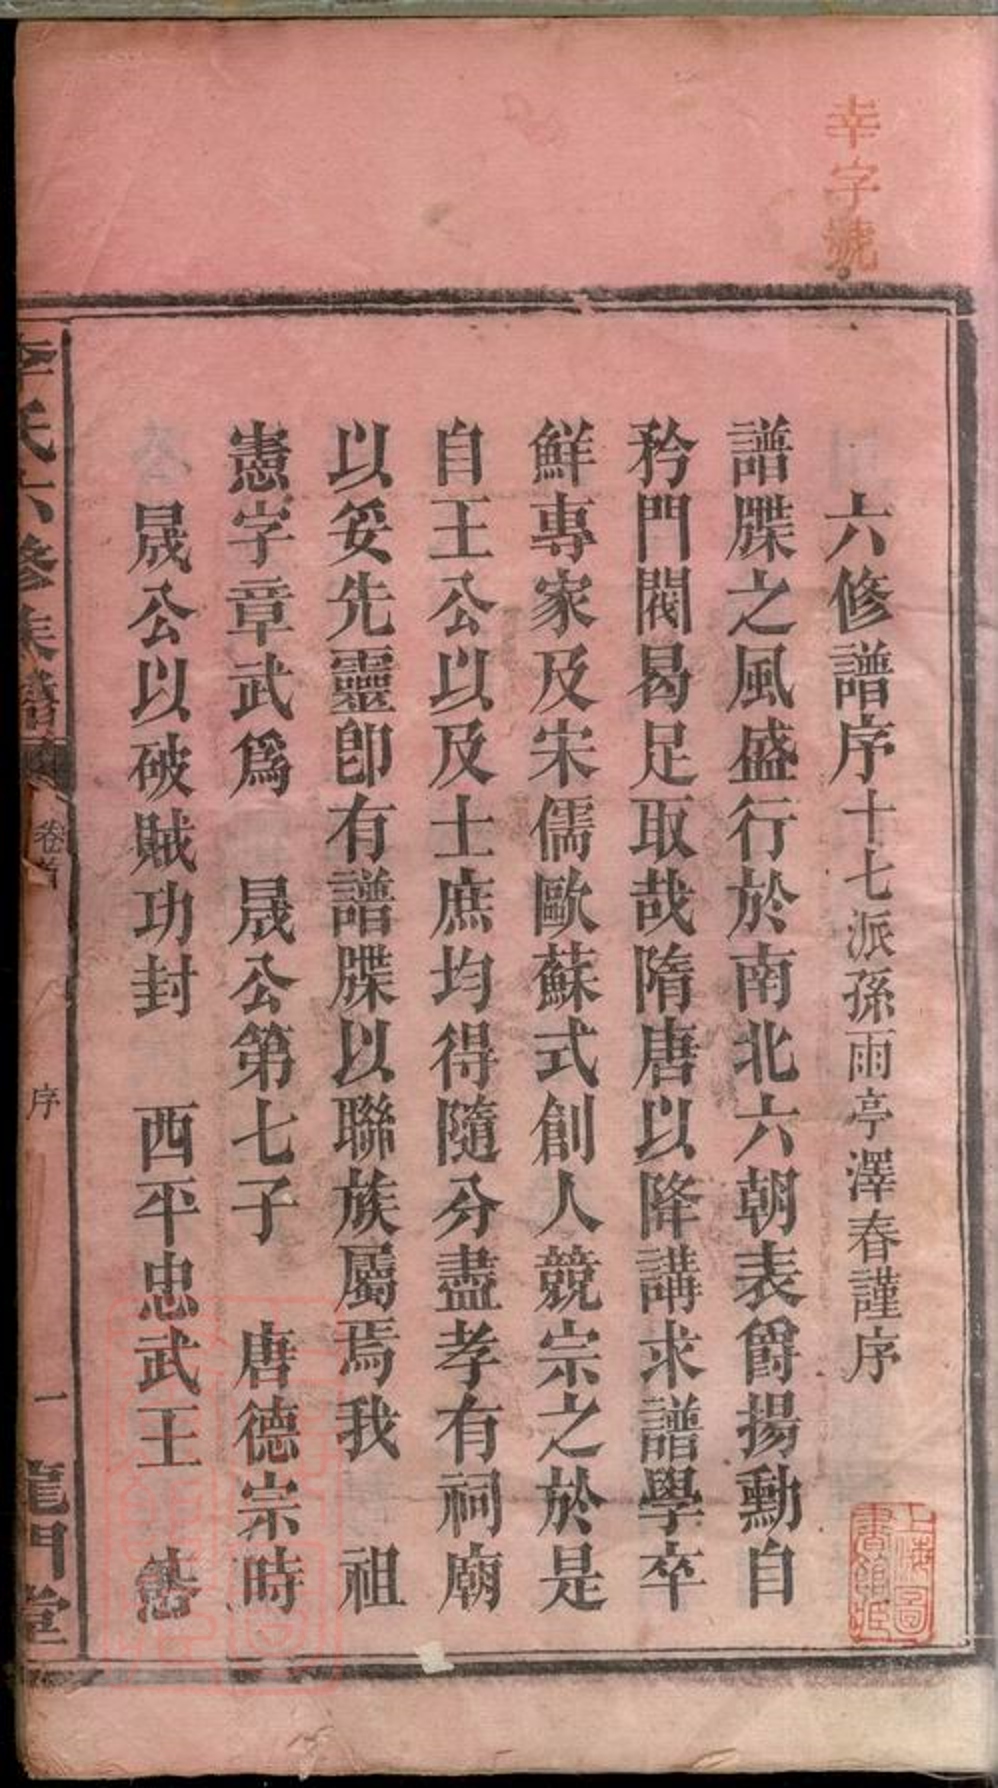 幸字號
六修譜序十七派孫雨亭澤春謹序
譜牒之風盛行於南北六朝表爵揚勳自
矜門閥曷足取哉隋唐以降講求譜學卒
鮮專家及宋儒歐蘇式創人競宗之於是
自王公以及士庶均得隨分盡孝有祠廟
以妥先靈卽有譜牒以聯族屬焉我　祖
憲字章武爲　晟公第七子　唐德宗時
晟公以破賊功封　西平忠武王　憲
李氏六修族譜
卷首
序
一
龍門堂
上海圖書館藏